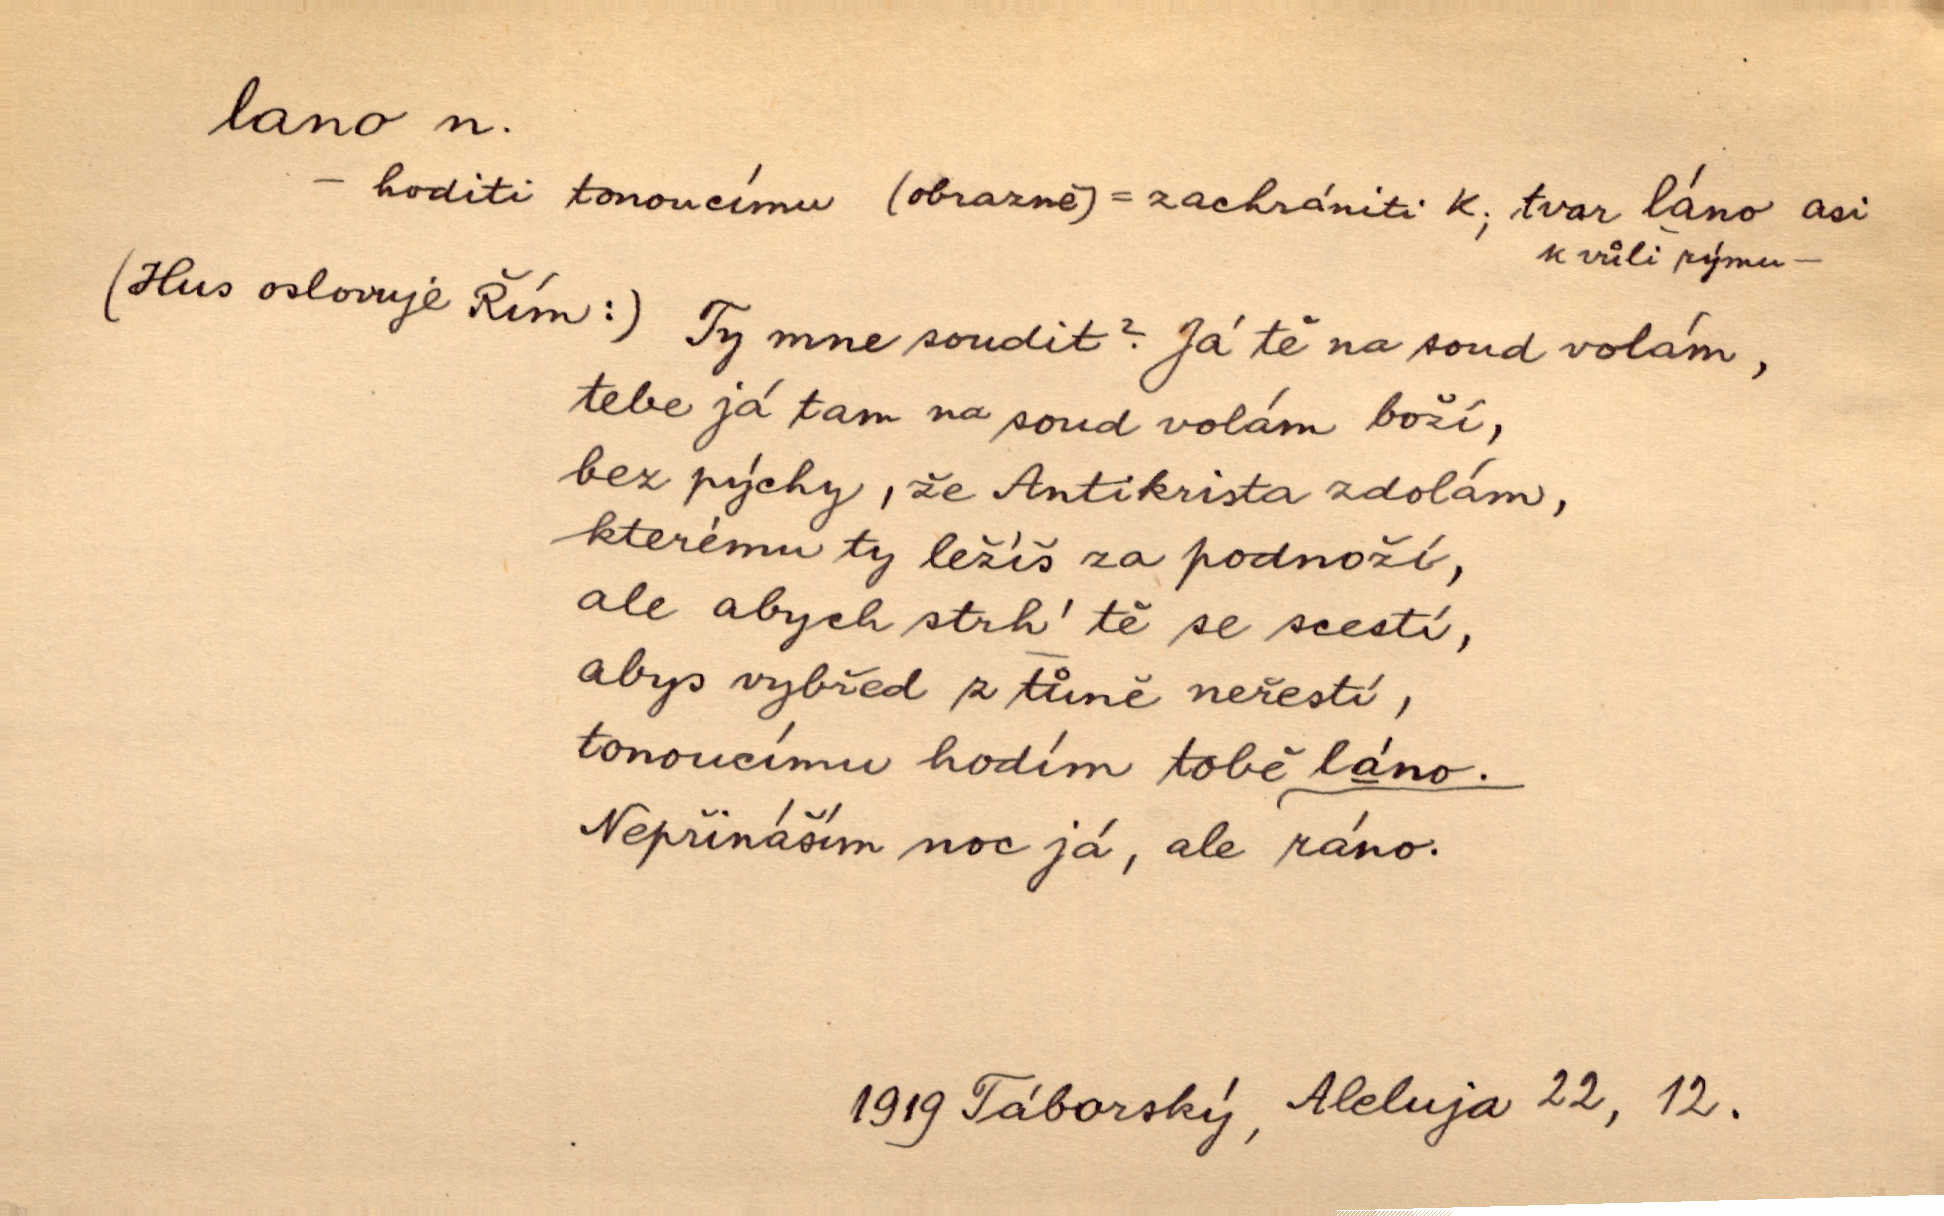 lano n.
– hoditi tonoucímu (obrazně) = zachrániti k.; tvar láno asi
k vůli rýmu –
(Hus oslovuje Řím:) Ty mne soudit? Já tě na soud volám,
tebe já tam na soud volám boží,
bez pýchy, že Antikrista zdolám,
kterému ty ležíš za podnoží,
ale abych strh' tě se scestí,
abys vybřed z tůně neřestí,
tonoucímu hodím tobě láno.
Nepřináším noc já, ale ráno.
1919 Táborský, Aleluja 22, 12.